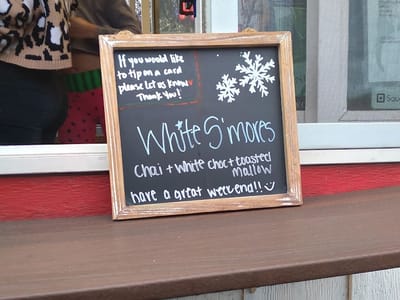 If you would like
to tip on a card
please let us know
Thank You!
White S'mores
Chai + White choc + toasted
mallow
have a great weekend!!
Squa